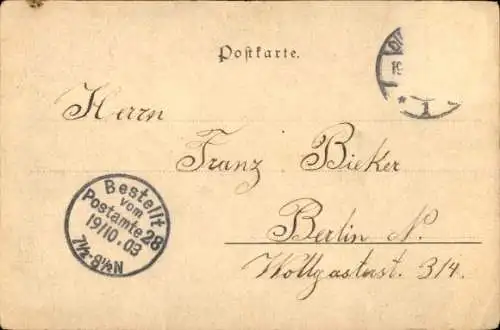 Postkarte.
19
1
Herrn
Franz Bieker
Bestellt
vom
Postamte 28
19/10.03
7½-8½N
Berlin N.
Wollgasterst. 3/4.